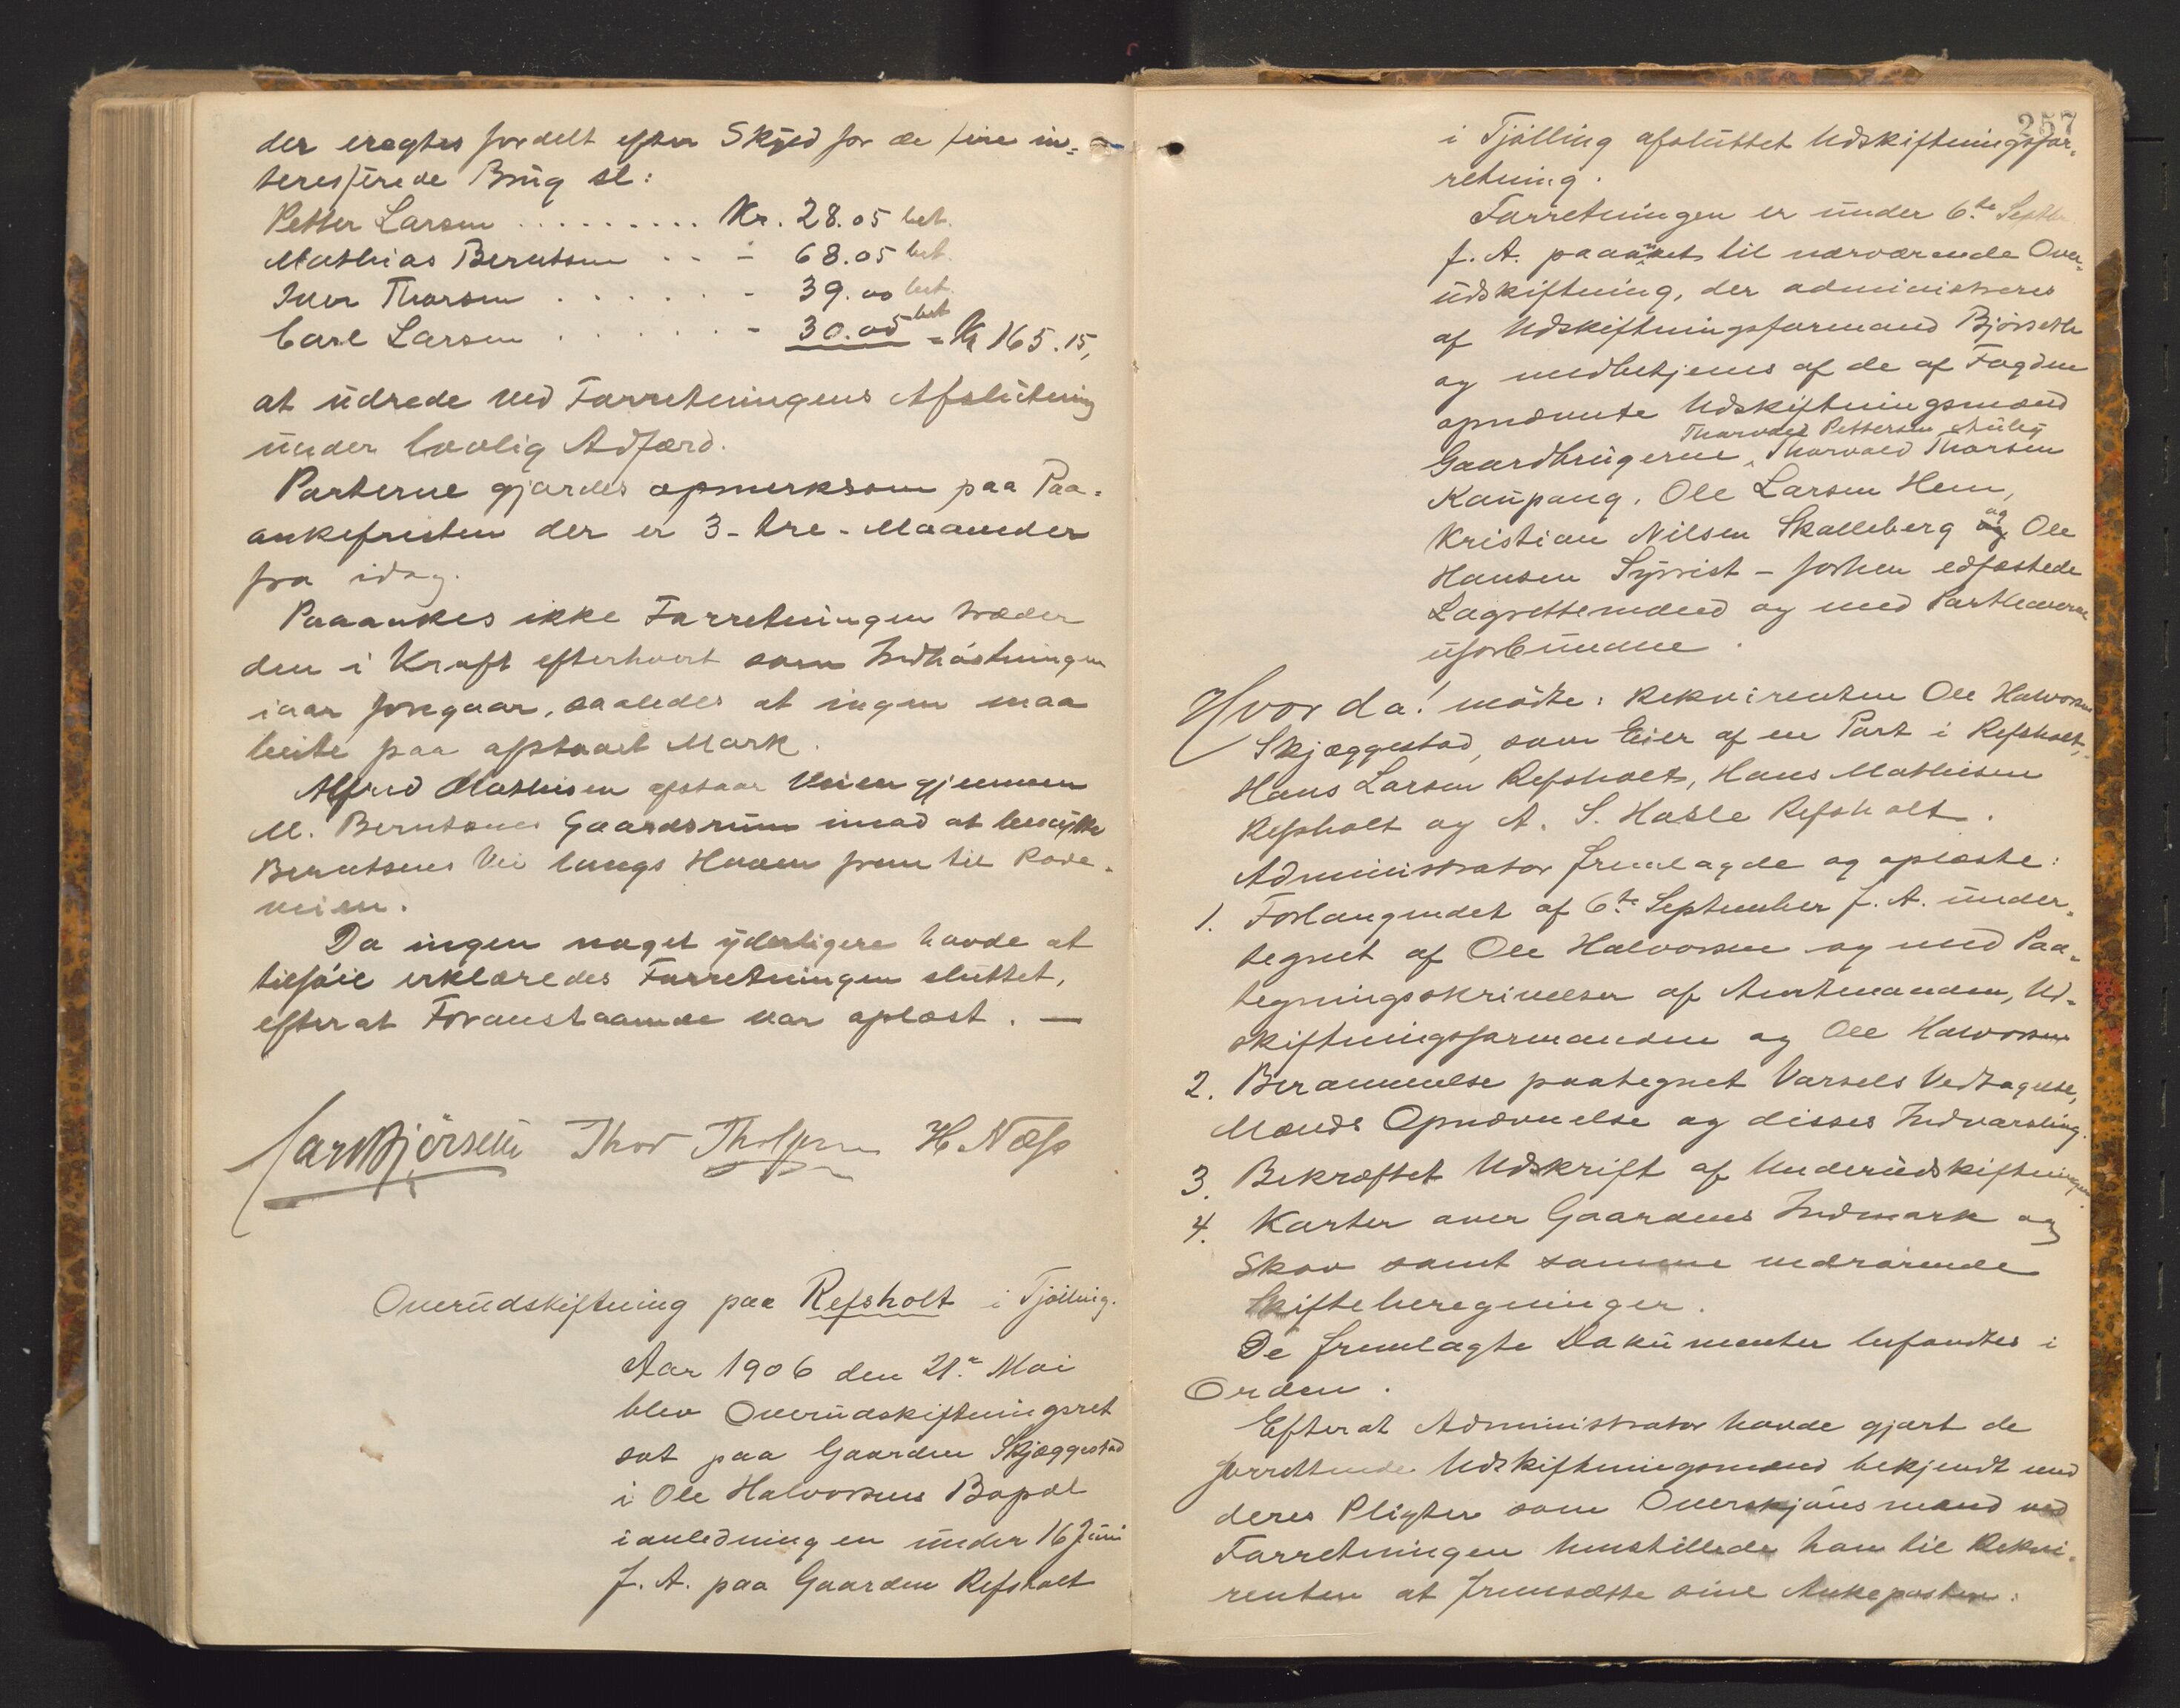 der eragtes fordelt efter Skyld for de fire in-
teresserede Brug sl:
Petter Larsen ......... Kr. 28.05 bet.
Mathias Berntsen .. - 68.05 bet.
Iver Thorsen ...... - 39.00 bet.
Carl Larsen ...... - 30.05 bet = Kr 165.15,
at udrede ved Forretningens Afslutning
under lovlig Adfærd.
Parterne gjordes opmerksom paa Paa-
ankefristen der er 3 - tre - Maaneder
fra idag.
Paaankes ikke Forretningen træder
den i Kraft efterhvert som Indhøstningen
iaar foregaar, saaledes at ingen maa
beite paa afstaaet Mark.
Alfred Mathisen afstaar Veien gjennem
M. Berntsens Gaardsrum imod at benytte
Berntsens Vei langs Haven frem til Rode-
veien.
Da ingen noget yderligere havde at
tilføie erklæredes Forretningen sluttet,
efterat Foranstaaende var oplæst. —
Carl Bjørseth Thor Tholfsen H. Næss
Overudskiftning paa Refsholt i Tjølling.
Aar 1906 den 21de Mai
blev Overudskiftningsret
sat paa Gaarden Skjæggestad
i Ole Halvorsens Bopæl
i anledning en under 16 Juni
f. A. paa Gaarden Refsholt
257
i Tjølling afsluttet Udskiftningsfor-
retning.
Forretningen er under 6te Septbr.
f. A. paaanket til nærværende Over-
udskiftning, der administreres
af Udskiftningsformand Bjørseth
og medbetjenes af de af Fogden
opnævnte Udskiftningsmænd
Thorvald Pettersen Auby
Gaardbrugerne, Thorvald Thorsen
Kaupang, Ole Larsen Hem,
Kristian Nilsen Skalleberg og Ole
Hansen Syrrist - forhen edfæstede
Lagrettemænd og med Parthaverne
uforbundne.
Hvorda! mødte: Rekvirenten Ole Halvorsen
Skjæggestad, som Eier af en Part i Refsholt,
Hans Larsen Refsholt, Hans Mathisen
Refsholt og A. S. Hasle Refsholt.
Administrator fremlagde og oplæste:
1. Forlangendet af 6te September f. A. under-
tegnet af Ole Halvorsen og med Paa-
tegningsskrivelser af Amtmanden, Ud-
skiftningsformanden og Ole Halvorsen
2. Berammelse paategnet Varsels Vedtagelse,
Mænds Opnævnelse og disses Indvarsling.
3. Bekræftet Udskrift af Underudskiftningen.
4. Karter over Gaardens Indmark og
Skov samt samme vedrørende
Skifteberegninger.
De fremlagte Dokumenter befandtes i
Orden.
Efterat Administrator havde gjort de
forrettende Udskiftningsmænd bekjendt med
deres Pligter som Overskjønsmænd ved
Forretningen henstillede han til Rekvi-
renten at fremsætte sine Ankeposter: